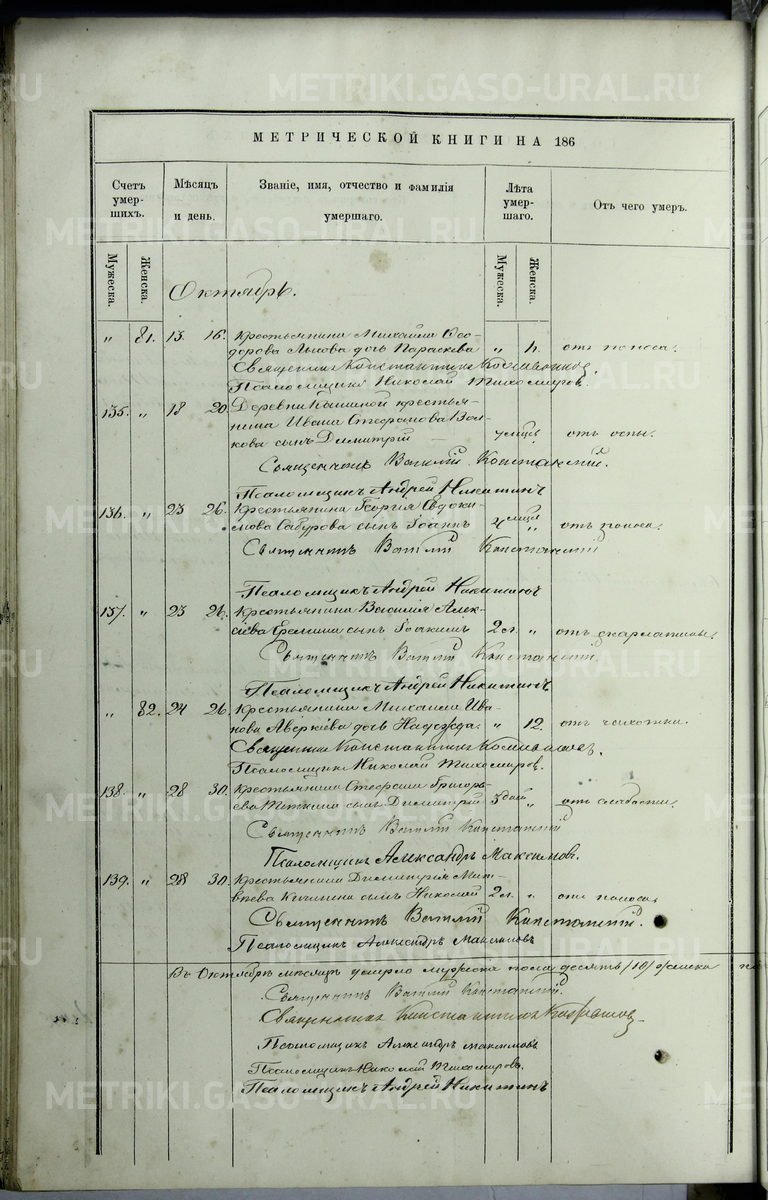 METRIKI.GASO-URAL.RU
МЕТРИЧЕСКОЙ КНИГИ НА 186
Счетъ умер-шихъ.
Мѣсяцъ и день.
Званіе, имя, отчество и фамилія умершаго.
Лѣта умер-шаго.
Отъ чего умеръ.
Мужеска.
Женска.
Мужеска.
Женска.
Октябрь.
„ 81. 13 16. Крестьянина Михаила Ѳео-
дорова дочь Параскева „ от поноса.
Священникъ Константинъ
Псаломщикъ Николай Тихомировъ.
135. „ 18 20. Деревни крестья-
нина Ивана Стефанова Вол-
кова сынъ Димитрій отъ оспы.
Священникъ Василій
Псаломщикъ Андрей Никитинъ
136. „ 23 26. Крестьянина Георгія Евдоки-
мова Сабурова сынъ Іоаннъ „ отъ поноса.
Священникъ Василій
Псаломщикъ Андрей Никитинъ
137. „ 23 26. Крестьянина Василія Алек-
сѣева Еремина сынъ Іоакимъ 2 л. „ отъ скарлатины.
Священникъ Василій
Псаломщикъ Андрей Никитинъ
„ 82. 24 26. Крестьянина Михаила Ива-
нова Аверкіева дочь Надежда. „ 12. отъ чахотки.
Священникъ Константинъ
Псаломщикъ Николай Тихомировъ.
138. „ 28 30. Крестьянина Стефана Григорь-
ева сынъ Димитрій „ отъ слабости.
Священникъ Василій
Псаломщикъ Александръ Максимовъ.
139. „ 28 30. Крестьянина Димитрія Мат-
вѣева сынъ Николай 2 л. „ отъ поноса.
Священникъ Василій
Псаломщикъ Александръ Максимовъ
Въ Октябрѣ мѣсяцѣ умерло мужеска пола десять /10/ женска
Священникъ Василій
Священникъ Константинъ
Псаломщикъ Александръ Максимовъ
Псаломщикъ Николай Тихомировъ.
Псаломщикъ Андрей Никитинъ